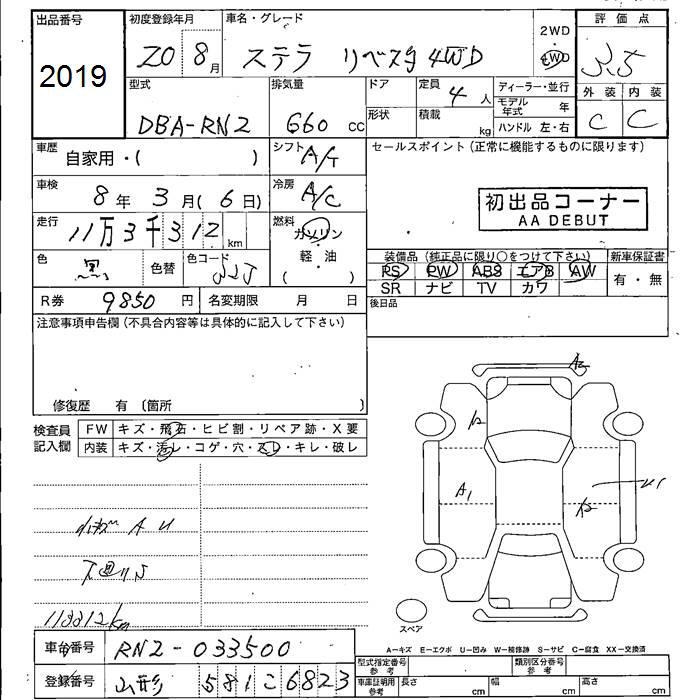 出品番号 初度登録年月 車名・グレード 2WD 評価点
2019 20 8月 ステラ リベスタ 4WD 4WD 3.5
型式 排気量 ドア 定員 4人 ディーラー・並行 外装 内装
DBA-RN2 660 cc 形状 積載 kg モデル年式 年 C C
ハンドル 左・右
車歴 自家用・( ) シフト A/T セールスポイント(正常に機能するものに限ります)
車検 8年 3月(6日) 冷房 A/C 初出品コーナー
AA DEBUT
走行 11万3千312km 燃料 ガソリン・軽・油( )
色 黒 色替 色コード 32J 装備品(純正品に限り○をつけて下さい) 新車保証書
PS PW ABS エアB AW 有・無
SR ナビ TV カワ
R券 9850円 名変期限 月 日 後日品
注意事項申告欄(不具合内容等は具体的に記入して下さい)
修復歴 有 〔箇所 〕
検査員記入欄 FW キズ・飛石・ヒビ割・リペア跡・X要
内装 キズ・汚レ・コゲ・穴・スレ・キレ・破レ
A2
A2
A1
U1
A2
小キズ A U
下廻りS
113312km
スペア
A-キズ E-エクボ U-凹み W-補修跡 S-サビ C-腐食 XX-交換済
車台番号 RN2-033500 型式指定番号 参考 類別区分番号 参考
登録番号 山形 581 こ 6823 車庫証明用 参考 長さ cm 幅 cm 高さ cm